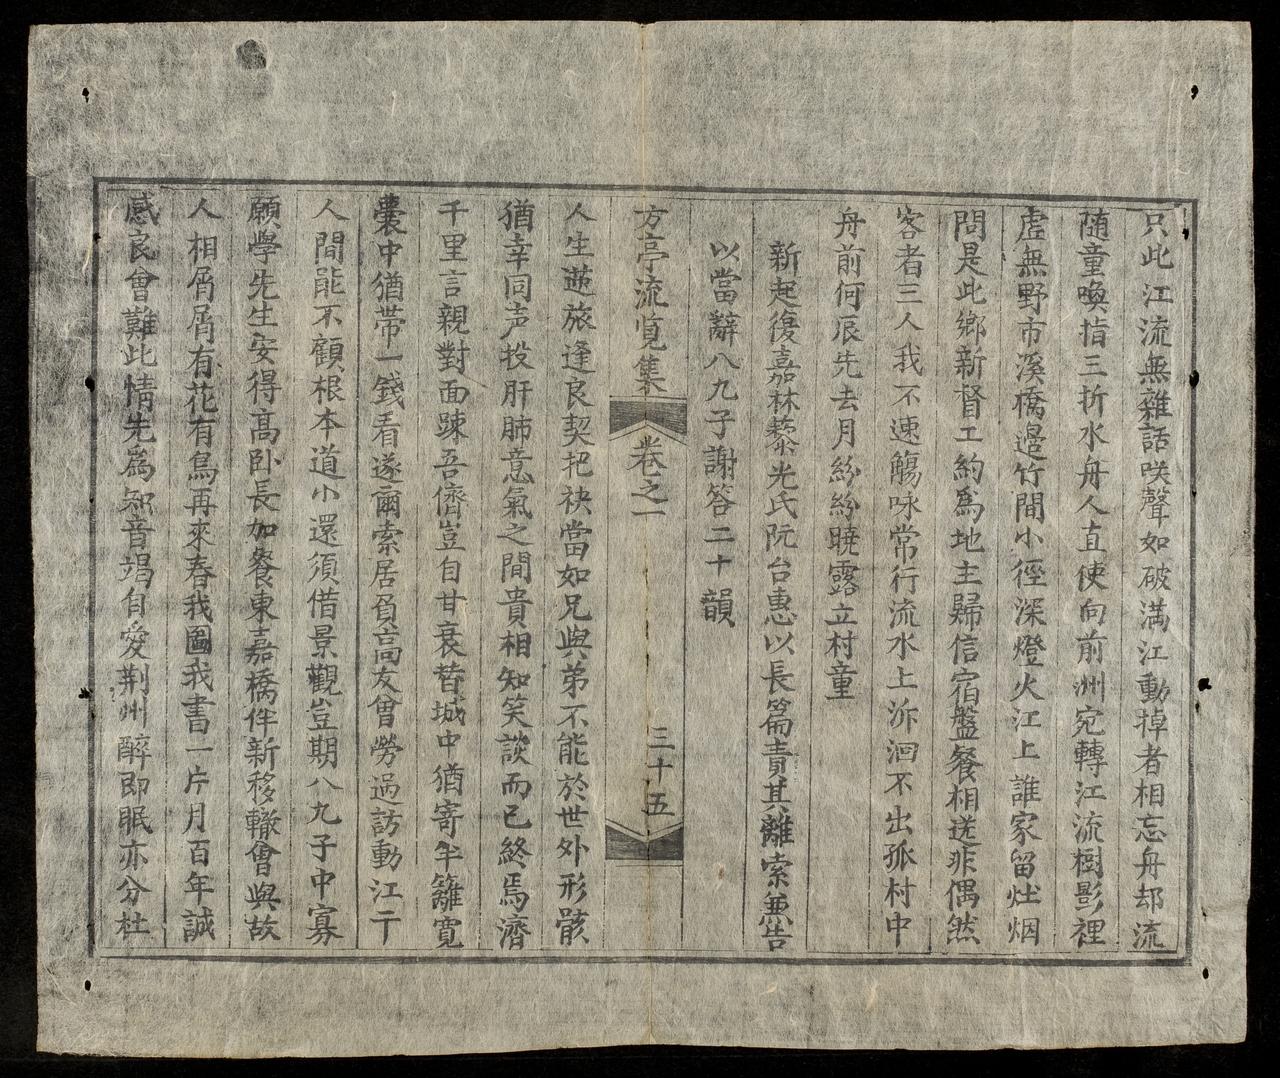 只此江流無雜話咲聲如破滿江動掉者相忘舟却流
随童喚指三折水舟人直使向前洲宛轉江流樹影裡
虛無野市溪橋邉竹間小徑深燈火江上誰家留灶烟
問是此鄉新督工約爲地主歸信宿盤餐相送非偶然
客者三人我不速觴咏常行流水上泝洄不出孤村中
舟前何辰先去月紛紛曉露立村童
新起復嘉林藜光氏阮台惠以長篇責其離索兼告
以當辭八九子謝答二十韻
方亭流覽集
卷之一
三十五
人生逆旅逢良契把袂當如兄與弟不能於世外形骸
猶幸同声投肝肺意氣之間貴相知笑談而已終焉濟
千里言親對面踈吾儕豈自甘衰替城中猶寄半籬寬
囊中猶帶一錢看遂爾索居負高友曾勞過訪動江干
人間能不顧根本道小還須借景觀豈期八九子中寡
願學先生安得高卧長如餐東嘉橋伴新移轍會與故
人相屑屑有花有鳥再來春我圖我書一片月百年誠
感良會難此情先爲知音竭自愛荆州醉即眠亦分杜